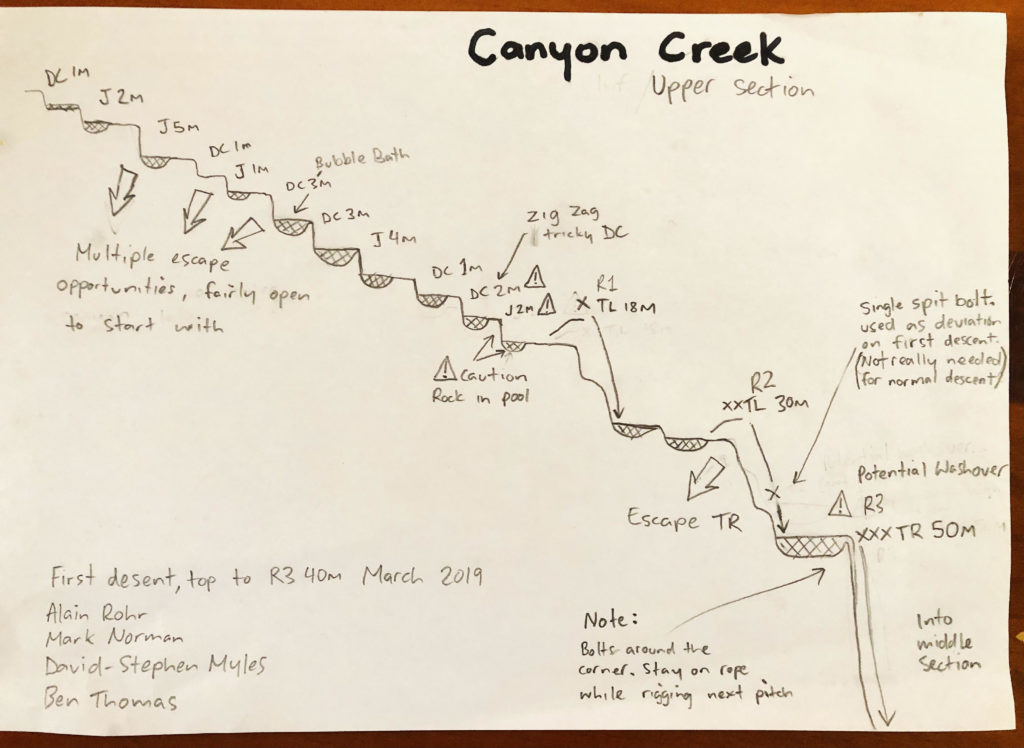 Canyon Creek
Upper section
DC 1M
J 2M
J 5M
DC 1M
J 1M
Bubble Bath
DC 3M
DC 3M
J 4M
Multiple escape
opportunities, fairly open
to start with
Zig Zag
tricky DC
DC 1M
DC 2M
J2M
Caution
Rock in pool
R1
X TL 18M
Single spit bolt.
used as deviation
on first descent.
(Not really needed)
for normal descent)
R2
xxTL 30M
X
Escape TR
Potential Washover
R3
XXX TR 50M
First desent, top to R3 40m March 2019
Alain Rohr
Mark Norman
David-Stephen Myles
Ben Thomas
Note:
Bolts around the
corner. Stay on rope
while rigging next pitch
Into
middle
Section